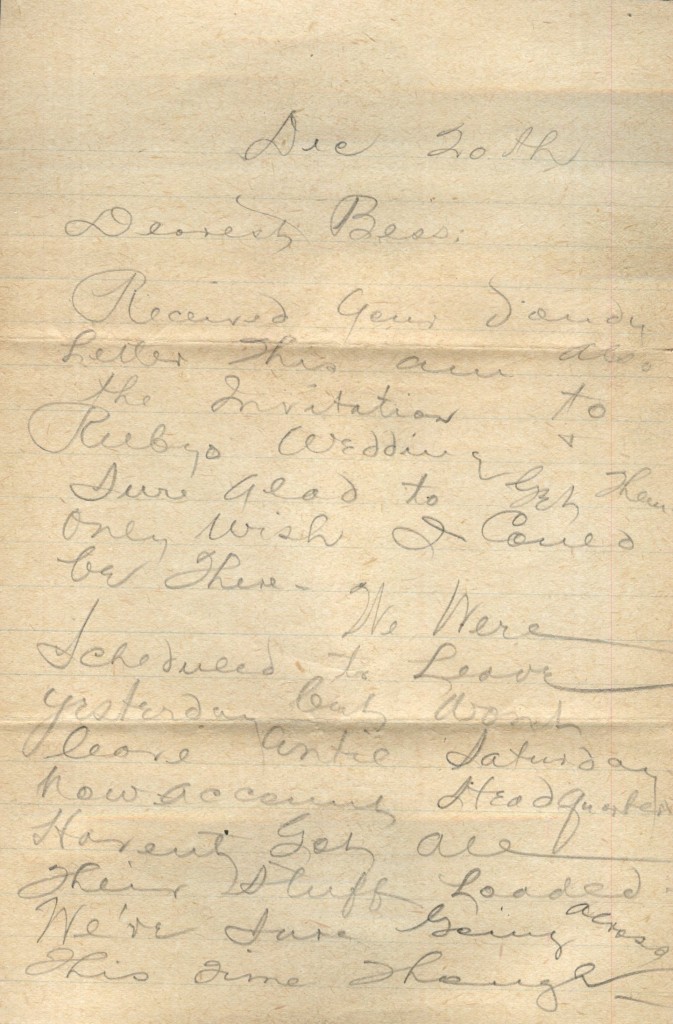 Dec 20th
Dearest Bess:
Received your dandy
Letter This am also
the Invitation to
Rubys Wedding &
Sure Glad to Get Them
Only Wish I Could
be There - We Were
Scheduled to Leave
yesterday but Wont
leave Until Saturday
now account Headquarters
Havent Got All
Their Stuff Loaded
We're Sure Going across
This Time Though -